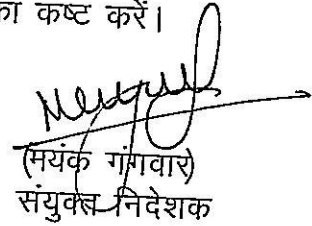 का कष्ट करें।
(मयंक गंगवार)
संयुक्त निदेशक